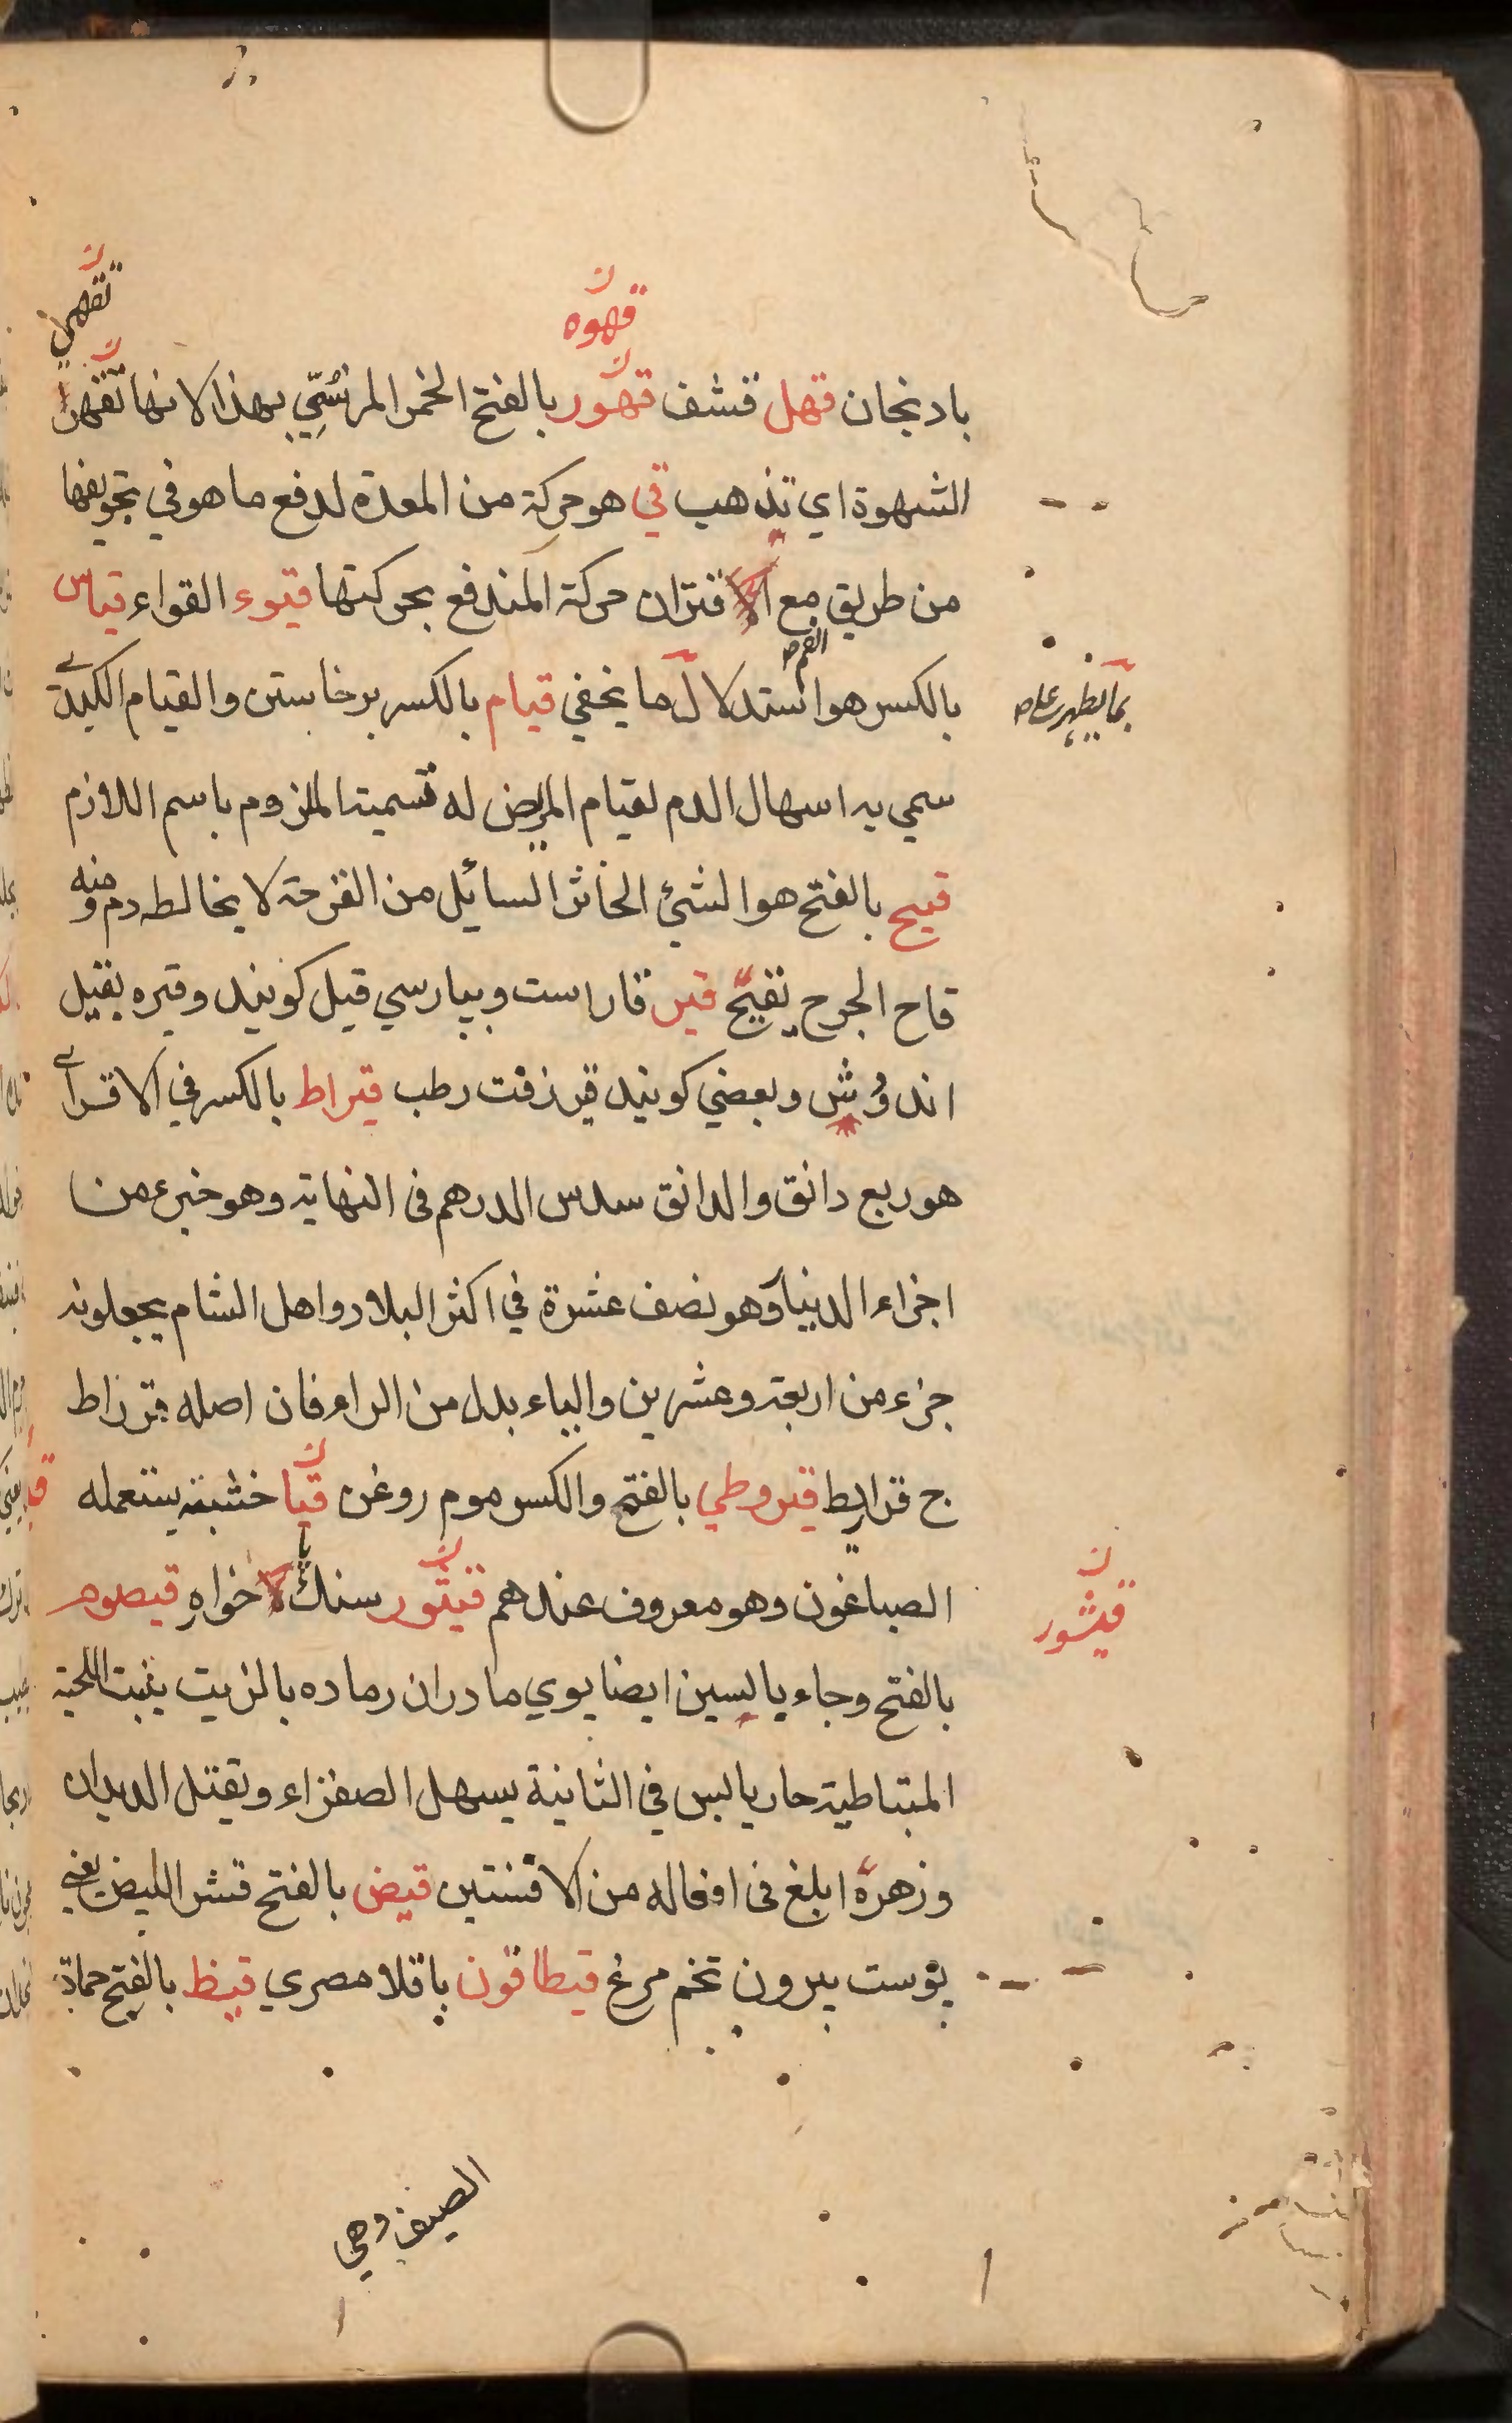 قهوه
تقهي
بادنجان قهل قشف قهور بالفتح الخمر المرنسّمِّي بهذا لانها تقهي
الشهوة اي تذهب قي هو حركة من المعدة لدفع ما هو في تجويفها
من طريق الفم مع اقتران حركة المندفع بحركتها قيوء القواء قياس
بما يظهر علي
بالكسر هو استدلال ما يخفي قيام بالكسر برخاستن والقيام الكبدے
سمي به اسهال الدم لقيام المريض له تسمية الملزوم باسم اللازم
قيح بالفتح هو الشئ الخاثر السائل من القرحة لا يخالطه دم ومنه
قاح الجرح يقيح قير قار است وبپارسي قيل كويند وقيره بقيل
اندوش وبعضي كويند قير زفت رطب قيراط بالكسر في الاقسرائے
هو ربع دانق والدانق سدس الدرهم فى النهاية وهو جزء من
اجزاء الدينار وهو نصف عشرة في اكثر البلاد واهل الشام يجعلونه
جزء من اربعة وعشرين والياء بدل من الراء فان اصله قرراط
ج قراريط قيروطي بالفتح والكسر موم روغن قيا خشبة يستعمله
الصباغون وهو معروف عندهم قيتور سنك پا خواهِ قيصوم
قيشور
بالفتح وجاء بالسين ايضا بوي مادران رماده بالزيت ينبت اللحية
المتباطية حار يابس فى الثانية يسهل الصفراء ويقتل الديدان
وزهره ابلغ فى افعاله من الافسنتين قيض بالفتح قشر البيض يعني
پوست بيرون تخم مرغ قيطاقون باقلا مصري قيظ بالفتح حمادّة
الصيف وهي